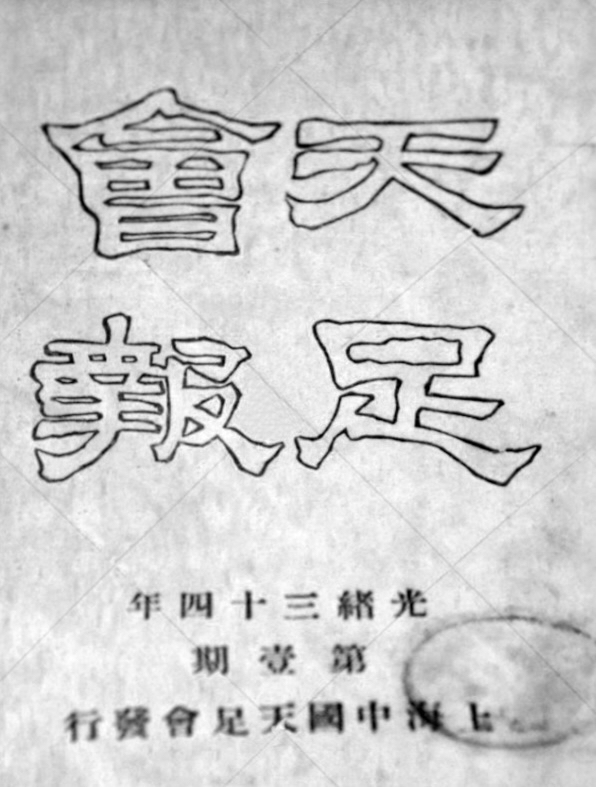 天足
會報
光緒三十四年
第壹期
上海中國天足會發行